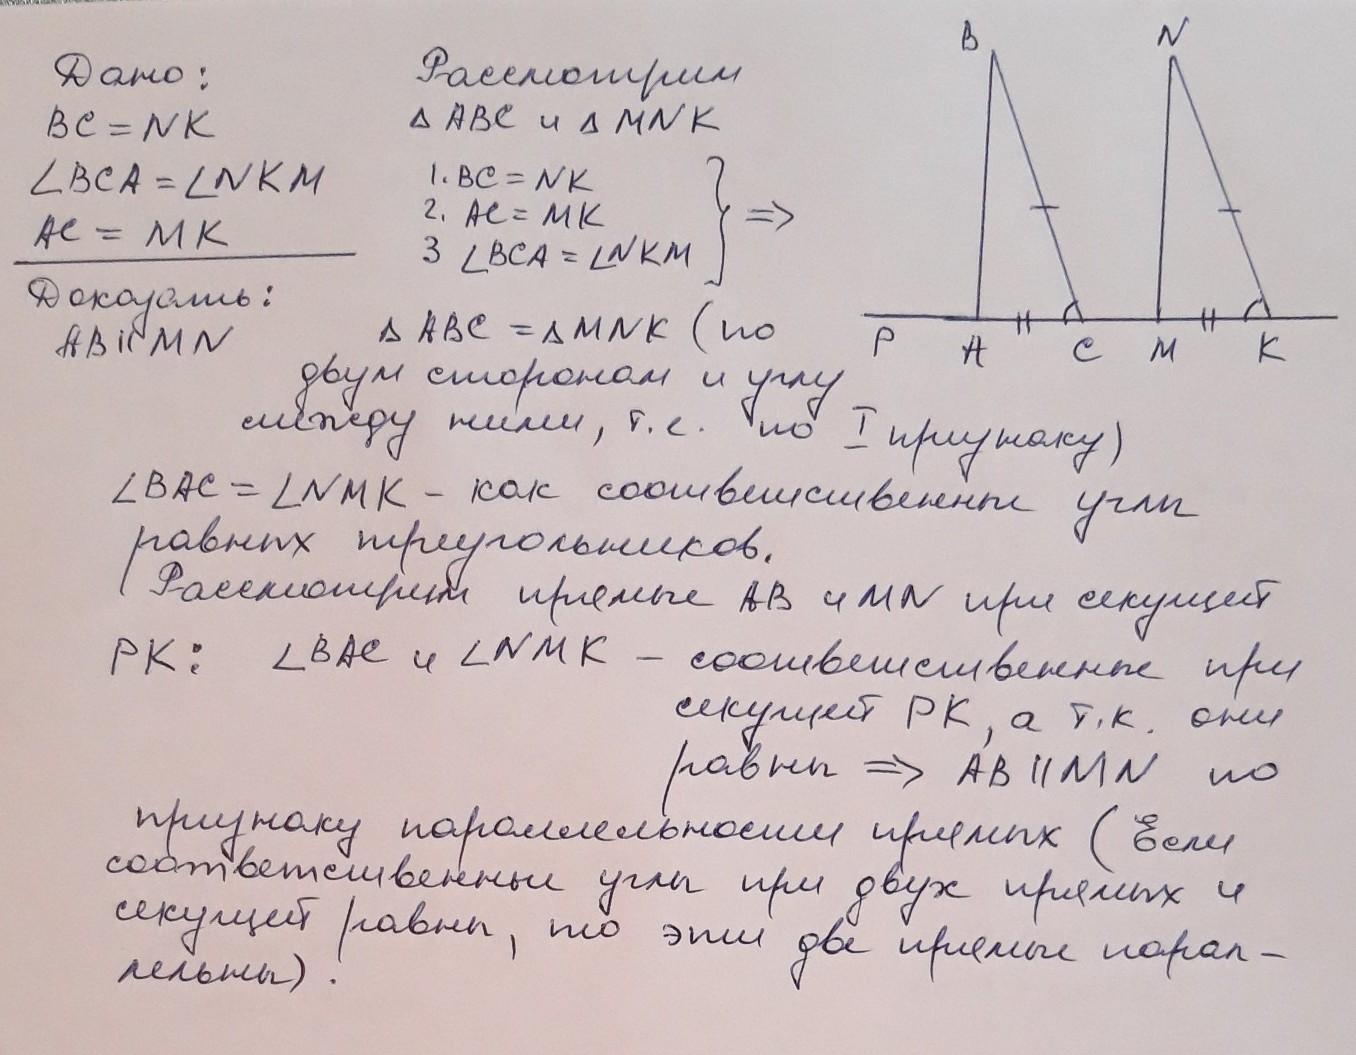 Дано:
BC = NK
∠BCA = ∠NKM
AC = MK
Доказать:
AB || MN
Рассмотрим
Δ ABC и Δ MNK
1. BC = NK
2. AC = MK
3 ∠BCA = ∠NKM
} =>
B
N
P
A
C
M
K
Δ ABC = Δ MNK (по
двум сторонам и углу
между ними, т.е. по I признаку)
∠BAC = ∠NMK – как соответственные углы
равных треугольников.
Рассмотрим прямые AB и MN при секущей
PK: ∠BAC и ∠NMK – соответственные при
секущей PK, а т.к. они
равны => AB || MN по
признаку параллельности прямых (Если
соответственные углы при двух прямых и
секущей равны, то эти две прямые парал-
лельны).